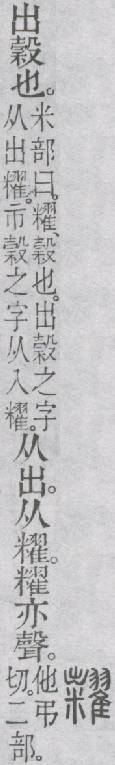 糶
出穀也。
米部曰。䊮、穀也。出穀之字
从出䊮。市穀之字从入䊮。
从出。从䊮。䊮亦聲。
他弔
切。二部。